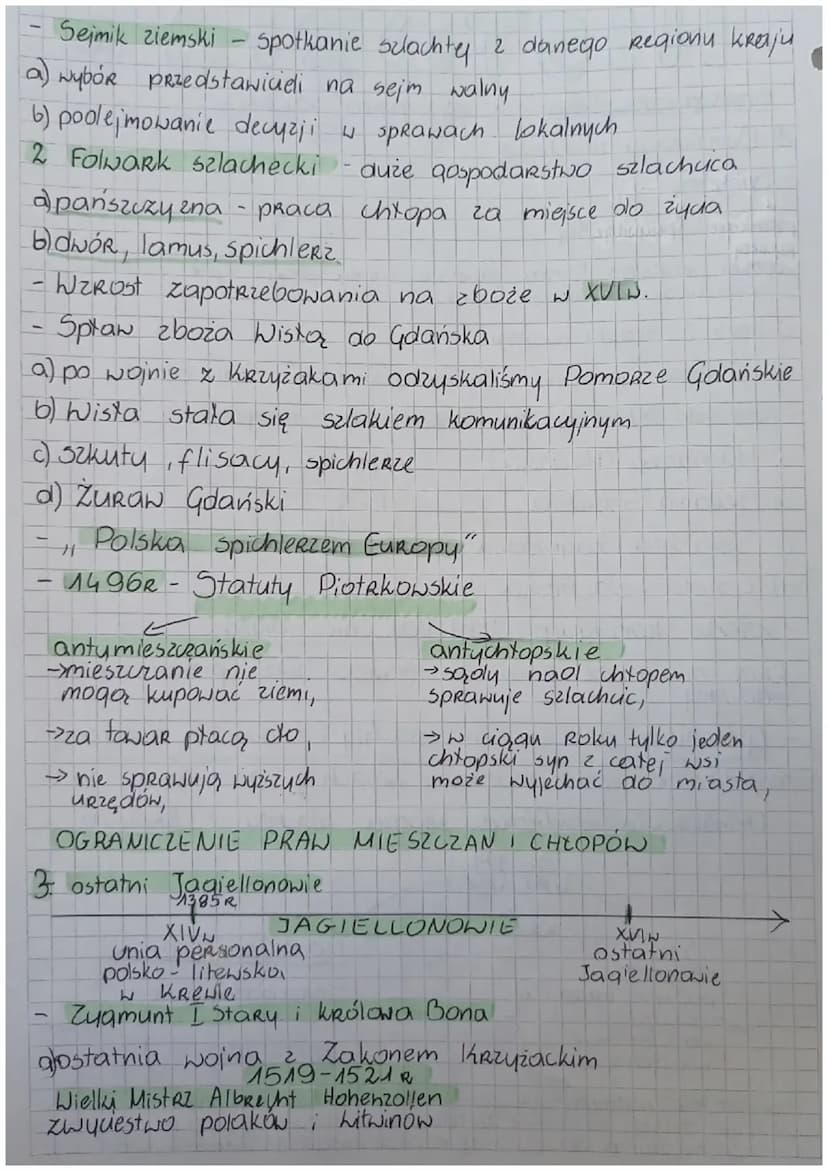 - Sejmik ziemski - spotkanie szlachty z danego regionu kraju
a) wybór przedstawicieli na sejm walny
b) podejmowanie decyzji w sprawach lokalnych
2 Folwark szlachecki - duże gospodarstwo szlachcica
a) pańszczyzna - praca chłopa za miejsce do życia
b) dwór, lamus, spichlerz
- Wzrost zapotrzebowania na zboże w XVIw.
- Spław zboża Wisłą do Gdańska
a) po wojnie z Krzyżakami odzyskaliśmy Pomorze Gdańskie
b) Wisła stała się szlakiem komunikacyjnym
c) szkuty, flisacy, spichlerze
d) Żuraw Gdański
- „Polska spichlerzem Europy"
- 1496r - Statuty Piotrkowskie
antymieszczańskie
→mieszczanie nie
mogą kupować ziemi,
→za towar płacą cło,
→ nie sprawują wyższych
urzędów,
antychłopskie
→sądy nad chłopem
sprawuje szlachcic,
→w ciągu roku tylko jeden
chłopski syn z całej wsi
może wyjechać do miasta,
OGRANICZENIE PRAW MIESZCZAN I CHŁOPÓW
3. ostatni Jagiellonowie
1385r
JAGIELLONOWIE
XIVw
unia personalna
polsko-litewska
w Krewie
XVIw
ostatni
Jagiellonowie
- Zygmunt I Stary i królowa Bona
a) ostatnia wojna z Zakonem Krzyżackim
1519-1521r
Wielki Mistrz Albrecht Hohenzollen
zwycięstwo polaków i Litwinów